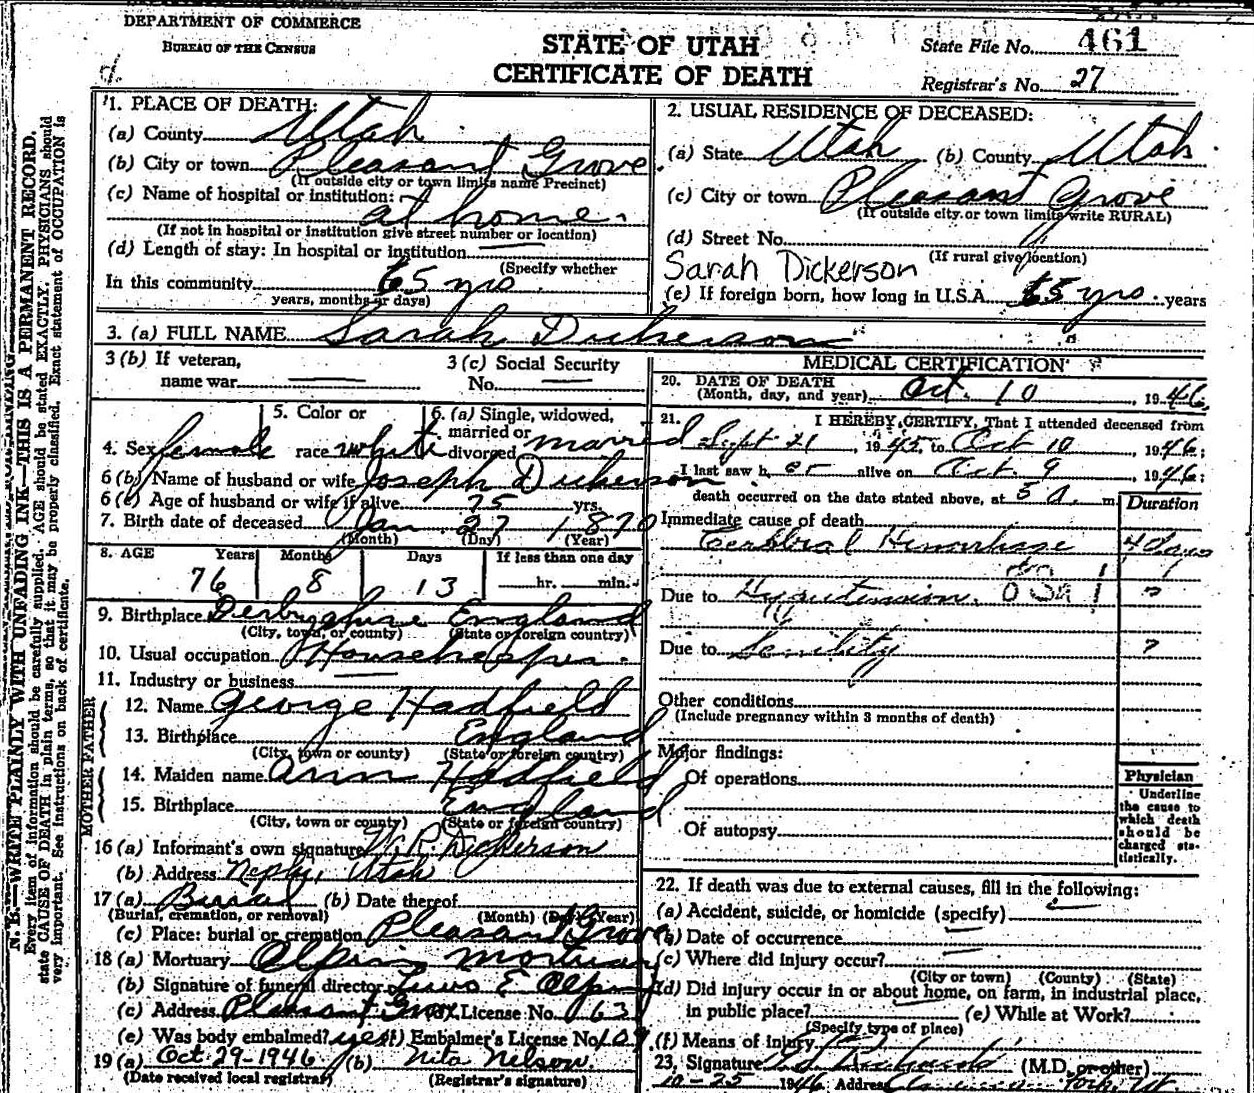 DEPARTMENT OF COMMERCE
BUREAU OF THE CENSUS
STATE OF UTAH
CERTIFICATE OF DEATH
State File No. 461
Registrar's No. 27
N. B.—WRITE PLAINLY WITH UNFADING INK—THIS IS A PERMANENT RECORD.
Every item of information should be carefully supplied. AGE should be stated EXACTLY. PHYSICIANS should
state CAUSE OF DEATH in plain terms, so that it may be properly classified. Exact statement of OCCUPATION is
very important. See instructions on back of certificate.
1. PLACE OF DEATH:
(a) County Utah
(b) City or town Pleasant Grove
(If outside city or town limits name Precinct)
(c) Name of hospital or institution:
at home
(If not in hospital or institution give street number or location)
(d) Length of stay: In hospital or institution
(Specify whether
In this community 65 yrs
years, months or days)
2. USUAL RESIDENCE OF DECEASED:
(a) State Utah (b) County Utah
(c) City or town Pleasant Grove
(If outside city or town limits write RURAL)
(d) Street No.
(If rural give location)
Sarah Dickerson
(e) If foreign born, how long in U.S.A. 65 yrs. years
3. (a) FULL NAME Sarah Dickerson
3 (b) If veteran,
name war
3 (c) Social Security
No.
4. Sex female
5. Color or
race white
6. (a) Single, widowed,
married or
divorced married
6 (b) Name of husband or wife Joseph Dickerson
6 (c) Age of husband or wife if alive 75 yrs.
7. Birth date of deceased Jan 27 1870
(Month) (Day) (Year)
8. AGE Years Months Days If less than one day
76 8 13 hr. min.
9. Birthplace Derbyshire England
(City, town, or county) (State or foreign country)
10. Usual occupation Housekeeper
11. Industry or business
FATHER
12. Name George Hadfield
13. Birthplace England
(City, town or county) (State or foreign country)
MOTHER
14. Maiden name Ann Hadfield
15. Birthplace England
(City, town or county) (State or foreign country)
16 (a) Informant's own signature W. R. Dickerson
(b) Address Nephi, Utah
17 (a) Burial (b) Date thereof
(Burial, cremation, or removal) (Month) (Day) (Year)
(c) Place: burial or cremation Pleasant Grove
18 (a) Mortuary Alpin Mortuary
(b) Signature of funeral director E Alpin
(c) Address Pleasant Grove License No. 63
(e) Was body embalmed? yes (f) Embalmer's License No. 109
19 (a) Oct 29-1946 (b) Nita Nelson.
(Date received local registrar) (Registrar's signature)
MEDICAL CERTIFICATION
20. DATE OF DEATH
(Month, day, and year) Oct. 10, 1946
21. I HEREBY CERTIFY, That I attended deceased from
Sept 21, 1945, to Oct 10, 1946;
I last saw her alive on Oct. 9, 1946;
death occurred on the date stated above, at 5 a. m.
Duration
Immediate cause of death
Cerebral Hemorrhage 4 days
Due to Hypertension. ?
Due to Senility ?
Other conditions
(Include pregnancy within 3 months of death)
Major findings:
Of operations
Of autopsy
Physician
Underline
the cause to
which death
should be
charged sta-
tistically.
22. If death was due to external causes, fill in the following:
(a) Accident, suicide, or homicide (specify)
(b) Date of occurrence
(c) Where did injury occur?
(City or town) (County) (State)
(d) Did injury occur in or about home, on farm, in industrial place,
in public place? (e) While at Work?
(Specify type of place)
(f) Means of injury
23. Signature (M.D. or other)
10-25 1946 Address American Fork, Ut.